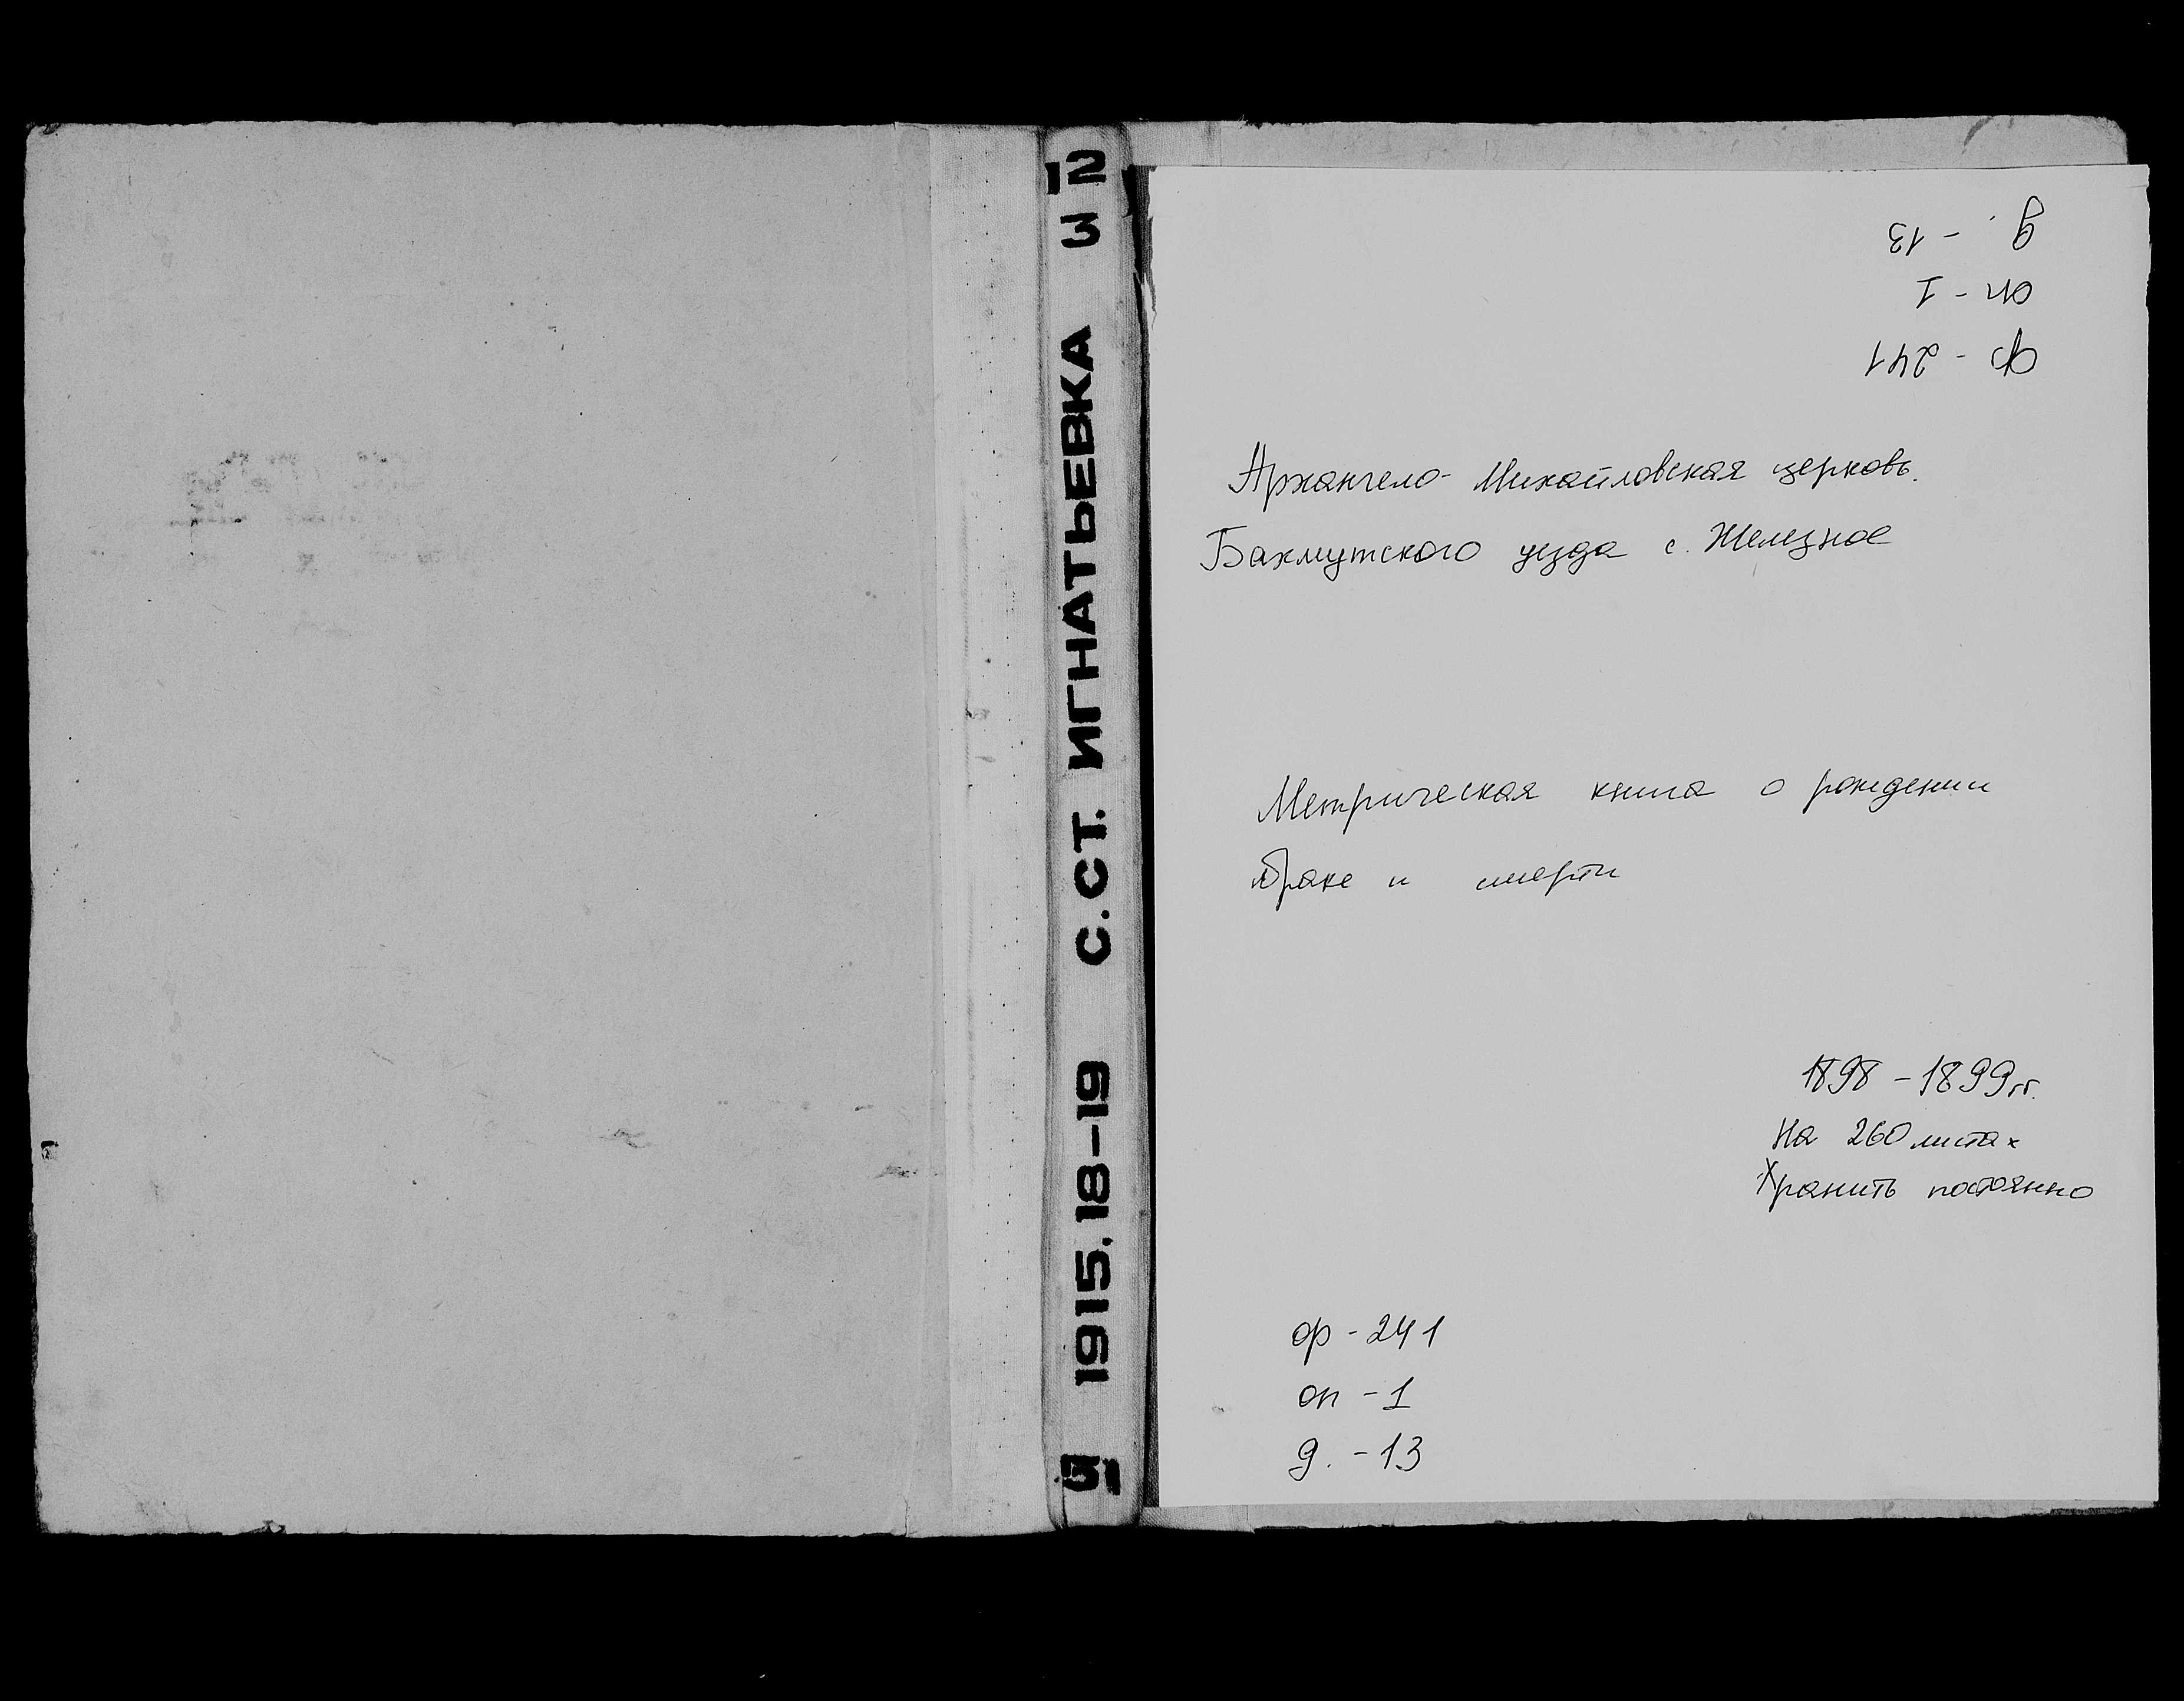 51 1915, 18-19 С.СТ. ИГНАТЬЕВКА 3 12
д. - 13
оп - 1
ф - 241
Архангело-Михайловская церковь.
Бахмутского уезда с. Железное
Метрическая книга о рождении
браке и смерти
1898 - 1899 гг.
На 260 листах
Хранить постоянно
ф - 241
оп - 1
д. - 13